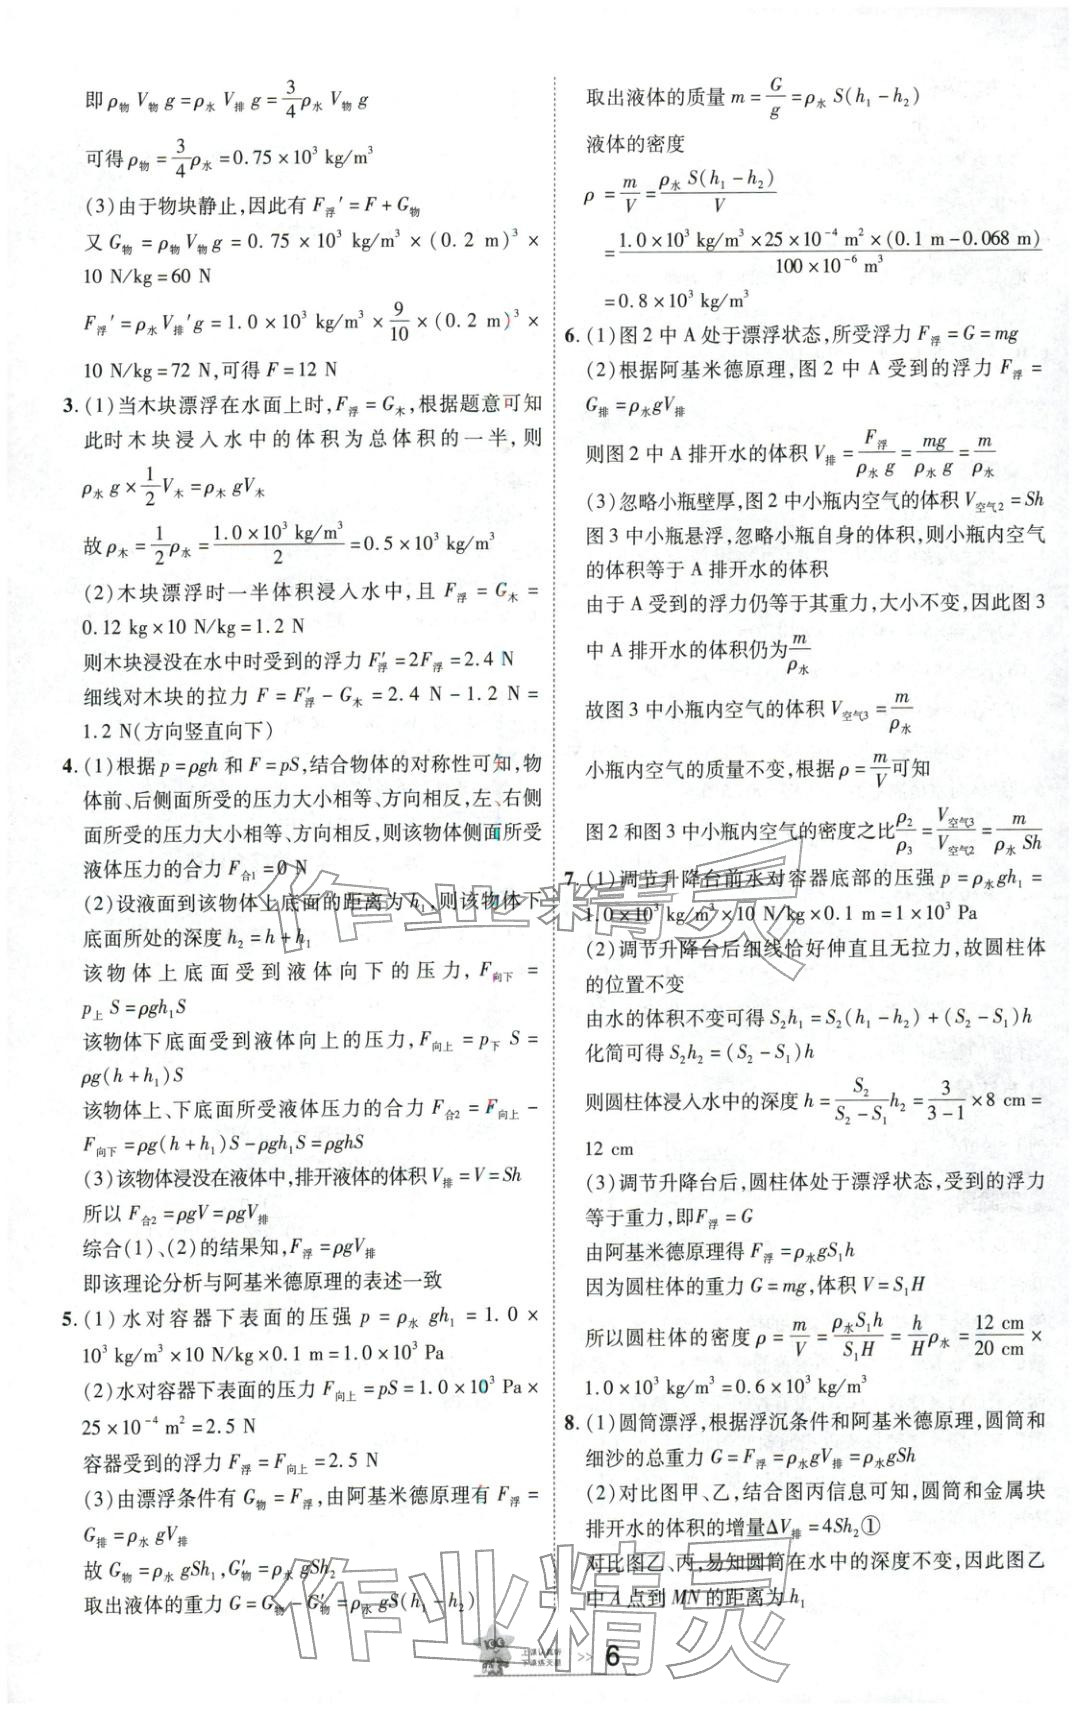 即ρ物 V物 g=ρ水 V排 g=3/4ρ水 V物 g
可得ρ物=3/4ρ水=0.75×10³ kg/m³
(3)由于物块静止,因此有 F浮′=F+G物
又 G物=ρ物 V物 g=0.75×10³ kg/m³×(0.2 m)³×
10 N/kg=60 N
F浮′=ρ水V排′g=1.0×10³ kg/m³×9/10×(0.2 m)³×
10 N/kg=72 N,可得 F=12 N
3. (1)当木块漂浮在水面上时,F浮=G木,根据题意可知
此时木块浸入水中的体积为总体积的一半,则
ρ水 g×1/2V木=ρ木 gV木
故ρ木=1/2ρ水=1.0×10³ kg/m³/2=0.5×10³ kg/m³
(2)木块漂浮时一半体积浸入水中,且 F浮=G木=
0.12 kg×10 N/kg=1.2 N
则木块浸没在水中时受到的浮力 F′浮=2F浮=2.4 N
细线对木块的拉力 F=F′浮-G木=2.4 N-1.2 N=
1.2 N(方向竖直向下)
4. (1)根据 p=ρgh 和 F=pS,结合物体的对称性可知,物
体前、后侧面所受的压力大小相等、方向相反,左、右侧
面所受的压力大小相等、方向相反,则该物体侧面所受
液体压力的合力 F合1=0 N
(2)设液面到该物体上底面的距离为 h₁,则该物体下
底面所处的深度 h₂=h+h₁
该物体上底面受到液体向下的压力,F向下=
p上 S=ρgh₁S
该物体下底面受到液体向上的压力,F向上=p下 S=
ρg(h+h₁)S
该物体上、下底面所受液体压力的合力 F合2=F向上-
F向下=ρg(h+h₁)S-ρgh₁S=ρghS
(3)该物体浸没在液体中,排开液体的体积 V排=V=Sh
所以 F合2=ρgV=ρgV排
综合(1)、(2)的结果知,F浮=ρgV排
即该理论分析与阿基米德原理的表述一致
5. (1)水对容器下表面的压强 p=ρ水 gh₁=1.0×
10³ kg/m³×10 N/kg×0.1 m=1.0×10³ Pa
(2)水对容器下表面的压力 F向上=pS=1.0×10³ Pa×
25×10⁻⁴ m²=2.5 N
容器受到的浮力 F浮=F向上=2.5 N
(3)由漂浮条件有 G物=F浮,由阿基米德原理有 F浮=
G排=ρ水 gV排
故 G物=ρ水 gSh₁,G′物=ρ水 gSh₂
取出液体的重力 G=G物-G′物=ρ水 gS(h₁-h₂)
取出液体的质量 m=G/g=ρ水 S(h₁-h₂)
液体的密度
ρ=m/V=ρ水 S(h₁-h₂)/V
=1.0×10³ kg/m³×25×10⁻⁴ m²×(0.1 m-0.068 m)/100×10⁻⁶ m³
=0.8×10³ kg/m³
6. (1)图2中A处于漂浮状态,所受浮力 F浮=G=mg
(2)根据阿基米德原理,图2中A受到的浮力 F浮=
G排=ρ水gV排
则图2中A排开水的体积 V排=F浮/ρ水 g=mg/ρ水 g=m/ρ水
(3)忽略小瓶壁厚,图2中小瓶内空气的体积 V空气2=Sh
图3中小瓶悬浮,忽略小瓶自身的体积,则小瓶内空气
的体积等于A排开水的体积
由于A受到的浮力仍等于其重力,大小不变,因此图3
中A排开水的体积仍为m/ρ水
故图3中小瓶内空气的体积 V空气3=m/ρ水
小瓶内空气的质量不变,根据 ρ=m/V可知
图2和图3中小瓶内空气的密度之比ρ₂/ρ₃=V空气3/V空气2=m/ρ水 Sh
7. (1)调节升降台前水对容器底部的压强 p=ρ水gh₁=
1.0×10³ kg/m³×10 N/kg×0.1 m=1×10³ Pa
(2)调节升降台后细线恰好伸直且无拉力,故圆柱体
的位置不变
由水的体积不变可得 S₂h₁=S₂(h₁-h₂)+(S₂-S₁)h
化简可得 S₂h₂=(S₂-S₁)h
则圆柱体浸入水中的深度 h=S₂/S₂-S₁h₂=3/3-1×8 cm=
12 cm
(3)调节升降台后,圆柱体处于漂浮状态,受到的浮力
等于重力,即F浮=G
由阿基米德原理得 F浮=ρ水gS₁h
因为圆柱体的重力 G=mg,体积 V=S₁H
所以圆柱体的密度 ρ=m/V=ρ水S₁h/S₁H=h/Hρ水=12 cm/20 cm×
1.0×10³ kg/m³=0.6×10³ kg/m³
8. (1)圆筒漂浮,根据浮沉条件和阿基米德原理,圆筒和
细沙的总重力 G=F浮=ρ水gV排=ρ水gSh
(2)对比图甲、乙,结合图丙信息可知,圆筒和金属块
排开水的体积的增量ΔV排=4Sh₂①
对比图乙、丙,易知圆筒在水中的深度不变,因此图乙
中A点到 MN的距离为 h₁
作业精灵
作业精灵
>> 6